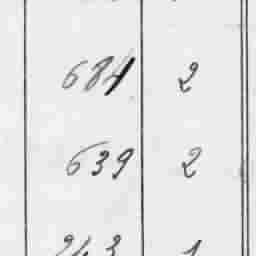 684 2
639 2
243 1